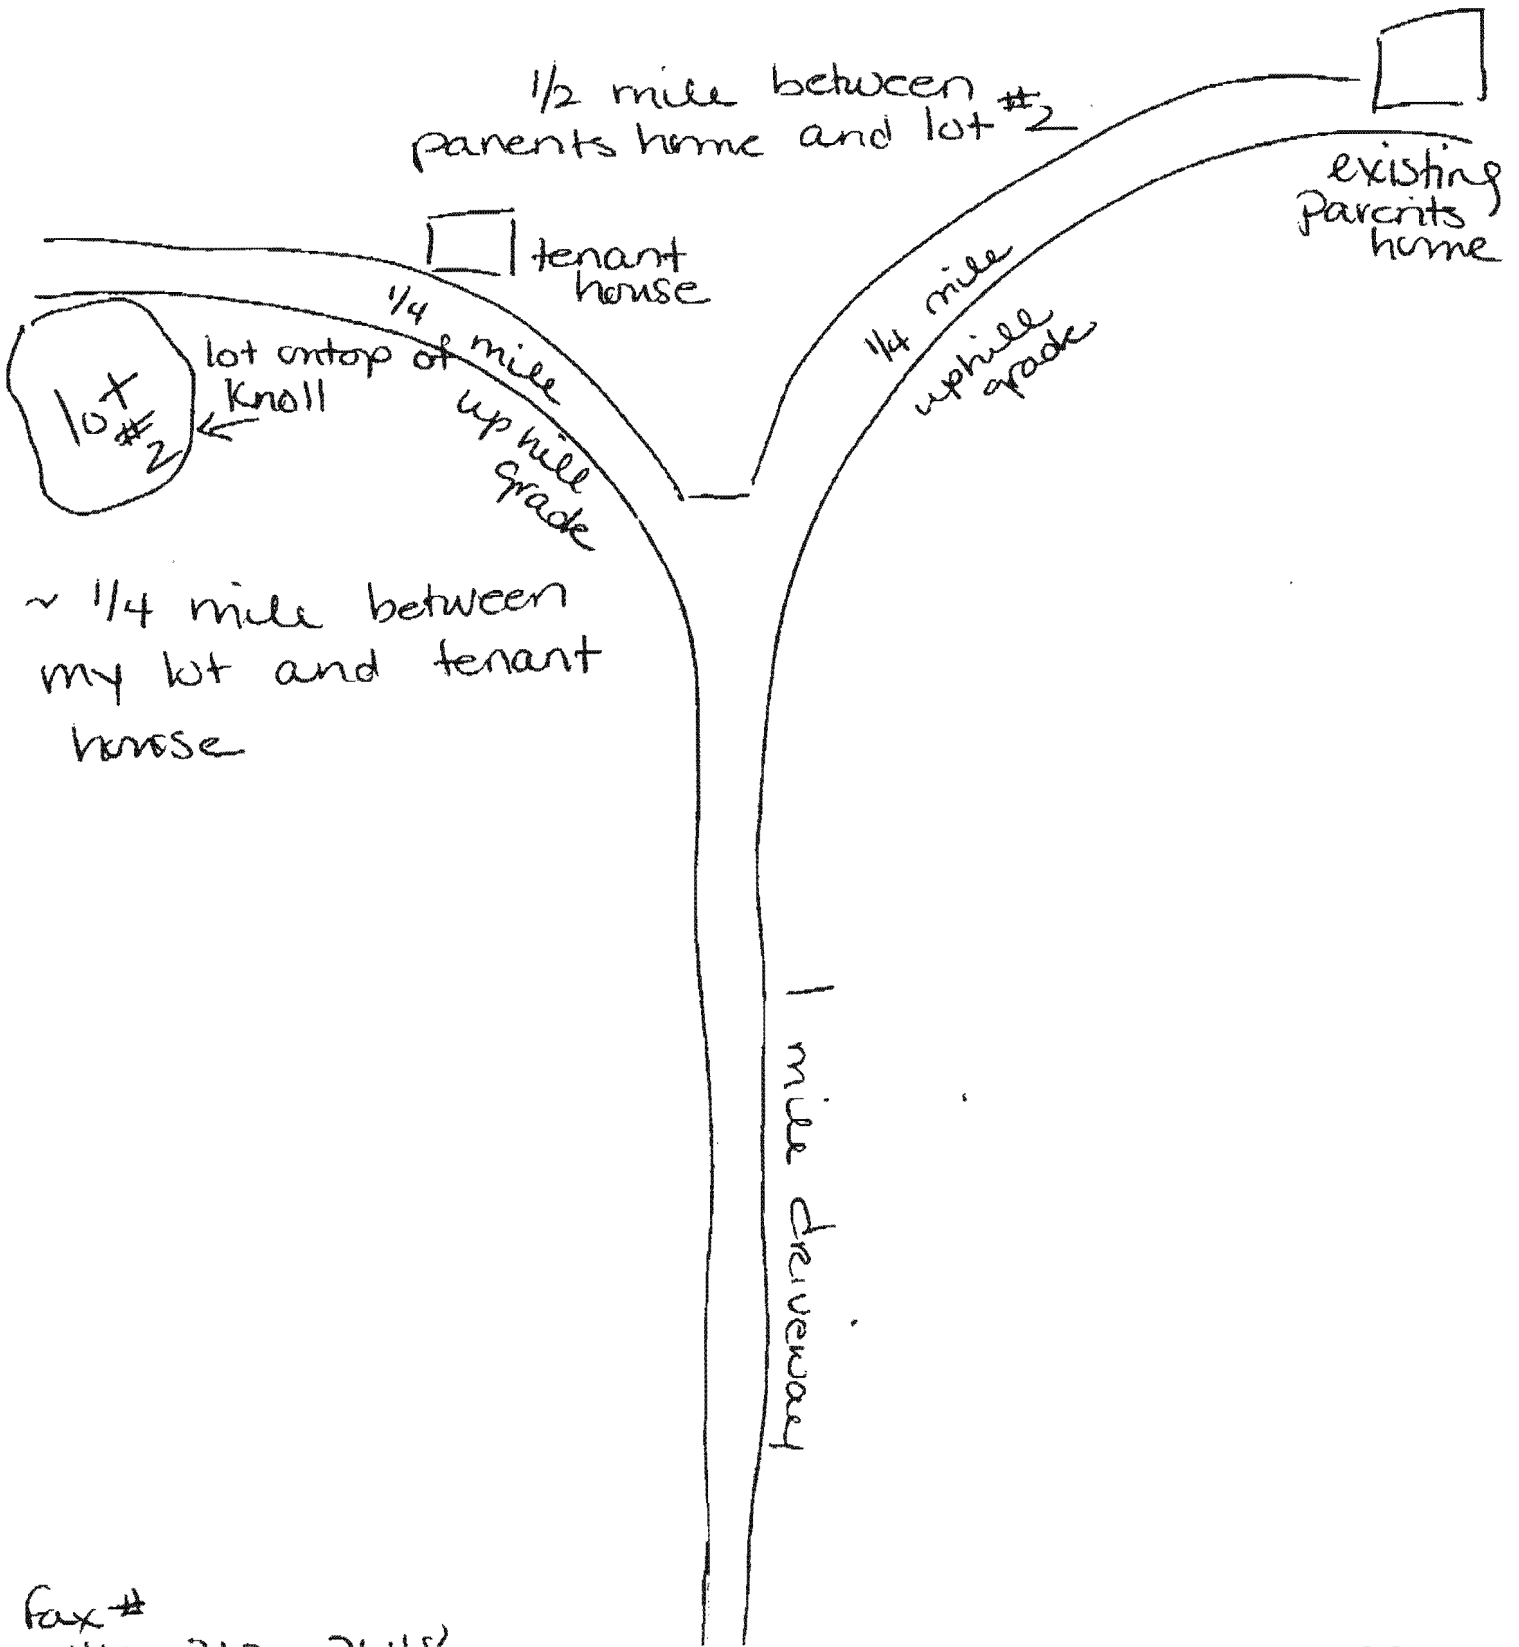 1/2 mile between
parents home and lot #2
existing
Parents
home
tenant
house
1/4 mile
uphill
grade
1/4 mile
uphill
grade
lot ontop of
Knoll
lot
#2
~ 1/4 mile between
my lot and tenant
house
1 mile driveway
fax #